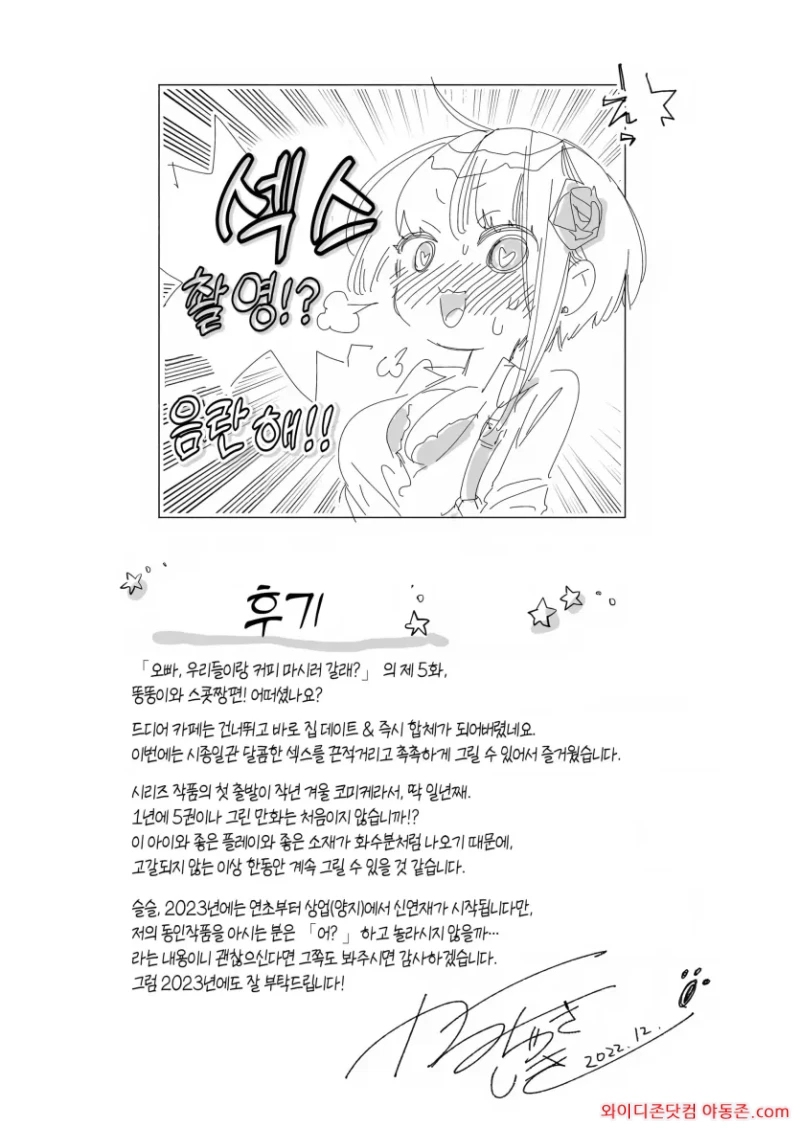 섹스
촬영!?
음란해!!
후기
「오빠, 우리들이랑 커피 마시러 갈래?」 의 제 5화,
똥똥이와 스콧짱편! 어떠셨나요?
드디어 카페는 건너뛰고 바로 집 데이트 & 즉시 합체가 되어버렸네요.
이번에는 시종일관 달콤한 섹스를 끈적거리고 촉촉하게 그릴 수 있어서 즐거웠습니다.
시리즈 작품의 첫 출발이 작년 겨울 코미케라서, 딱 일년째.
1년에 5권이나 그린 만화는 처음이지 않습니까!?
이 아이와 좋은 플레이와 좋은 소재가 화수분처럼 나오기 때문에,
고갈되지 않는 이상 한동안 계속 그릴 수 있을 것 같습니다.
슬슬, 2023년에는 연초부터 상업(양지)에서 신연재가 시작됩니다만,
저의 동인작품을 아시는 분은 「어?」 하고 놀라시지 않을까…
라는 내용이니 괜찮으신다면 그쪽도 봐주시면 감사하겠습니다.
그럼 2023년에도 잘 부탁드립니다!
2022.12.
와이디존닷컴 야동존.com